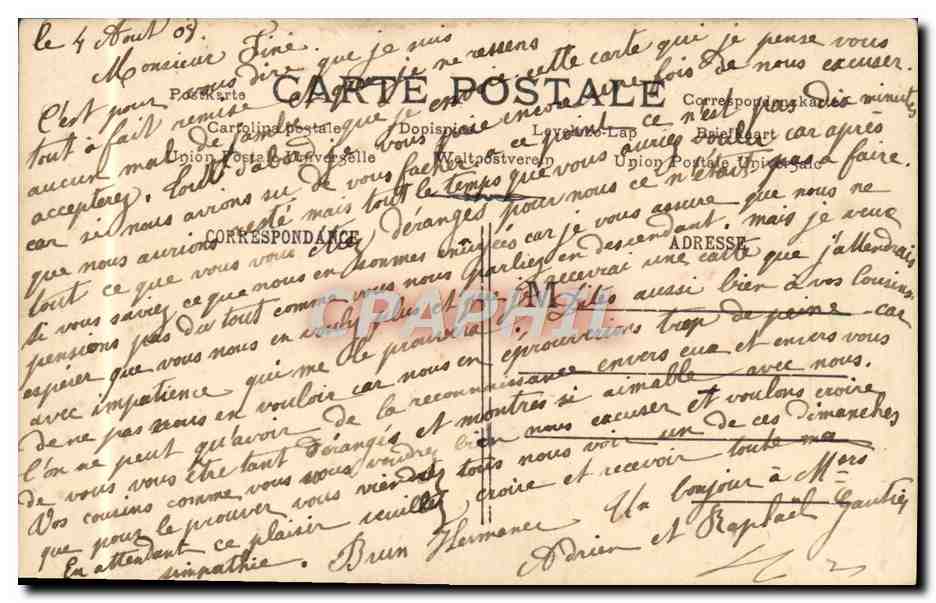 le 4 Aout 08.
Monsieur Finé.
C'est pour vous dire que je suis
tout à fait remise et que je ne ressens
aucun mal de jambe que j'envoie cette carte que je pense vous
accepterez. Tout d'abord je vous prie encore une fois de nous excuser.
car si nous avions su de vous facher à ce point ce n'est pas dix minutes
que nous aurions resté mais tout le temps que vous auriez voulu car après
tout ce que vous vous étiez dérangés pour nous ce n'était pas à faire.
si vous saviez ce que nous en sommes ennuyées car je vous assure que nous ne
pensions pas du tout comme vous nous parliez en descendant. mais je veux
espérer que vous nous en voulez plus et que je recevrai une carte que j'attendrais
avec impatience qui me le prouvera. Dites aussi bien à vos cousins
de ne pas nous en vouloir car nous en éprouverions trop de peine car
l'on ne peut qu'avoir de la reconnaissance envers eux et envers vous
de vous vous être tant dérangés et montrés si aimable avec nous.
Vos cousins comme vous vous voudrez bien nous excuser et voulons croire
que pour le prouver vous viendrez tous nous voir un de ces dimanches
En attendant ce plaisir veuillez croire et recevoir toute ma
simpathie. Brun Hermance Un bonjour à Mers
Adrien et Raphael Gautier
CARTE POSTALE
Postkarte
Correspondenzkarte
Cartolina postale
Dopisnice
Levelezo-Lap
Briefkaart
Union Postale Universelle
Weltpostverein
Union Postale Universale
CORRESPONDANCE
ADRESSE
M
CPAPHIL